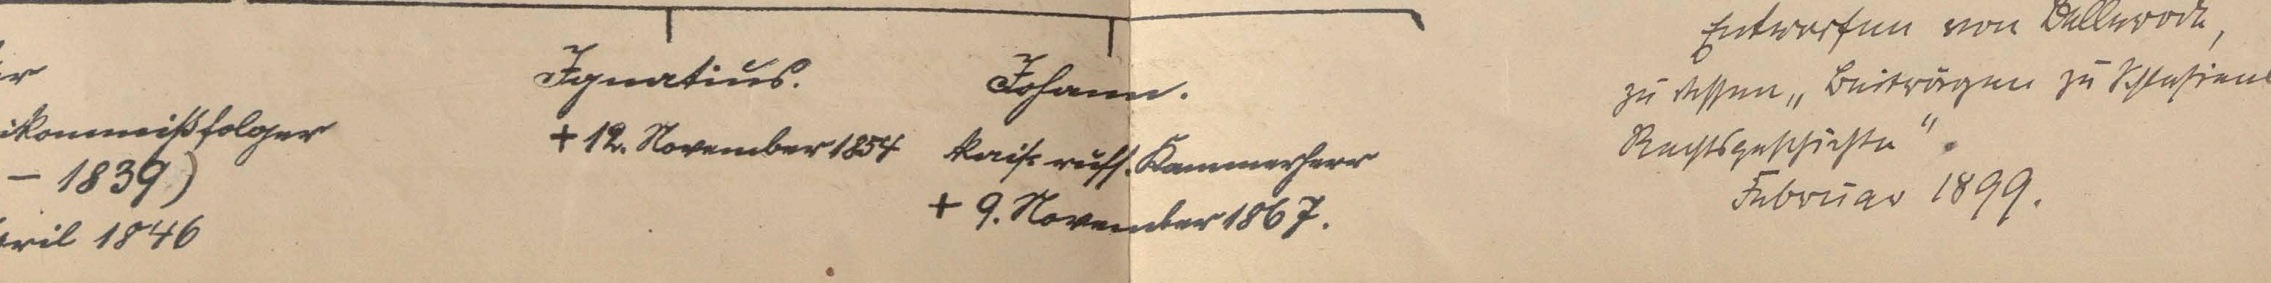 r
ikommißfolger
– 1839)
pril 1846
Ignatius.
+ 12. November 1854
Johann.
kais. russ. Kammerherr
+ 9. November 1867.
Entworfen von
zu dessen „Beiträgen zu Schlesiens
Rechtsgeschichte“.
Februar 1899.